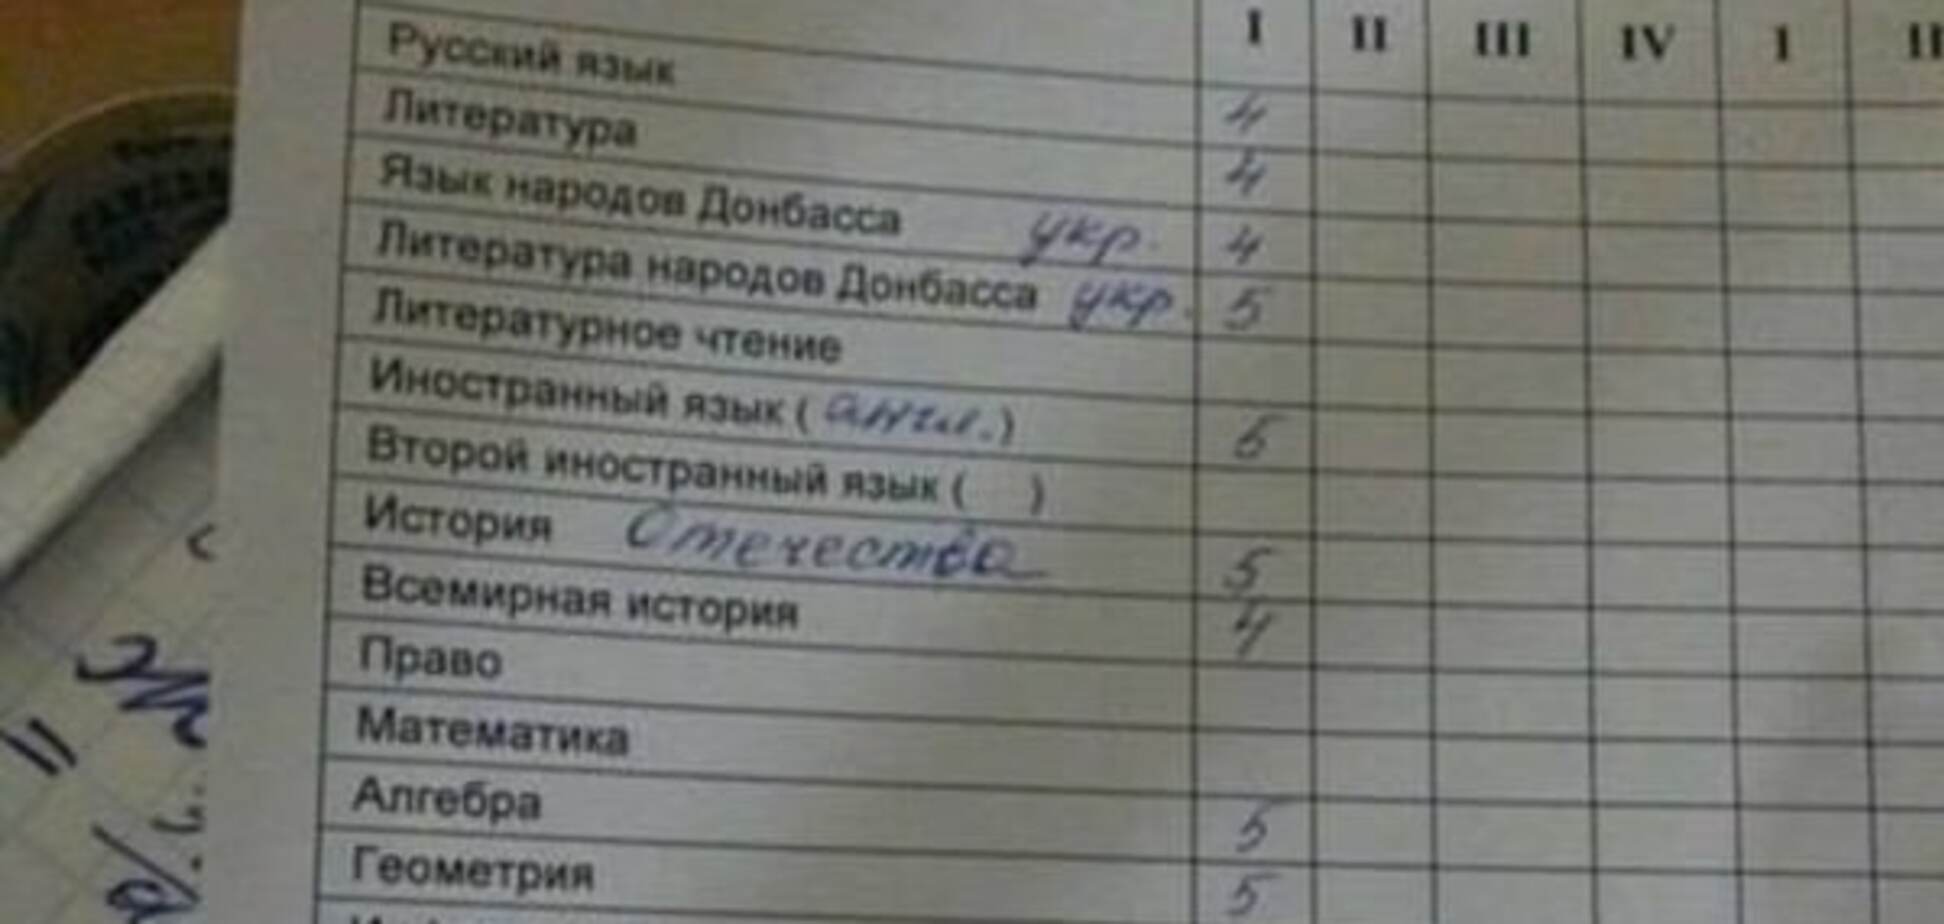 I II III IV I II
Русский язык 4
Литература 4
Язык народов Донбасса укр. 4
Литература народов Донбасса укр. 5
Литературное чтение
Иностранный язык ( англ. ) 5
Второй иностранный язык ( )
История Отечества 5
Всемирная история 4
Право
Математика
Алгебра 5
Геометрия 5